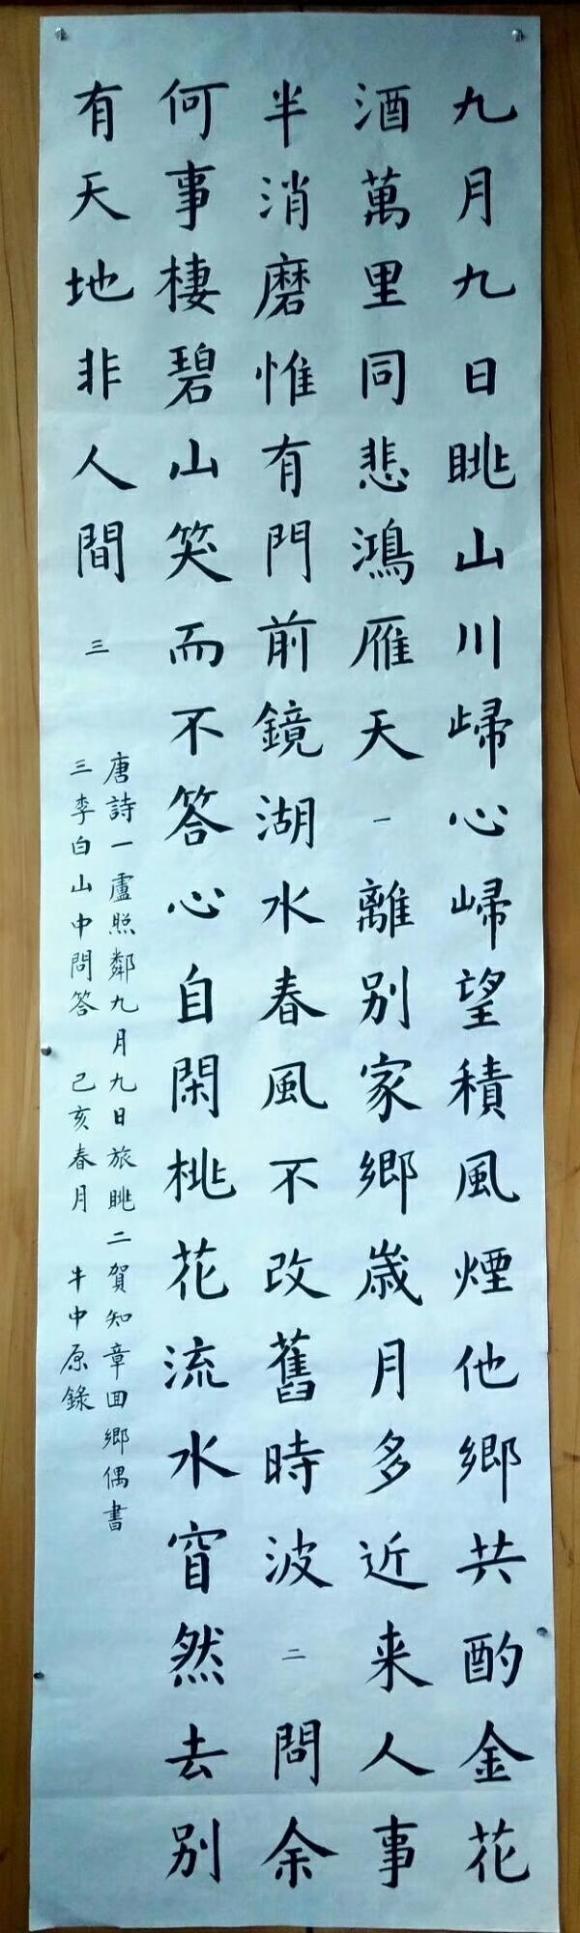 九月九日眺山川歸心歸望積風煙他鄉共酌金花
酒萬里同悲鴻雁天 一 離別家鄉歲月多近来人事
半消磨惟有門前鏡湖水春風不改舊時波 二 問余
何事棲碧山笑而不答心自閑桃花流水窅然去别
有天地非人間 三
唐詩一盧照鄰九月九日旅眺二賀知章回鄉偶書
三李白山中問答 己亥春月 牛中原錄